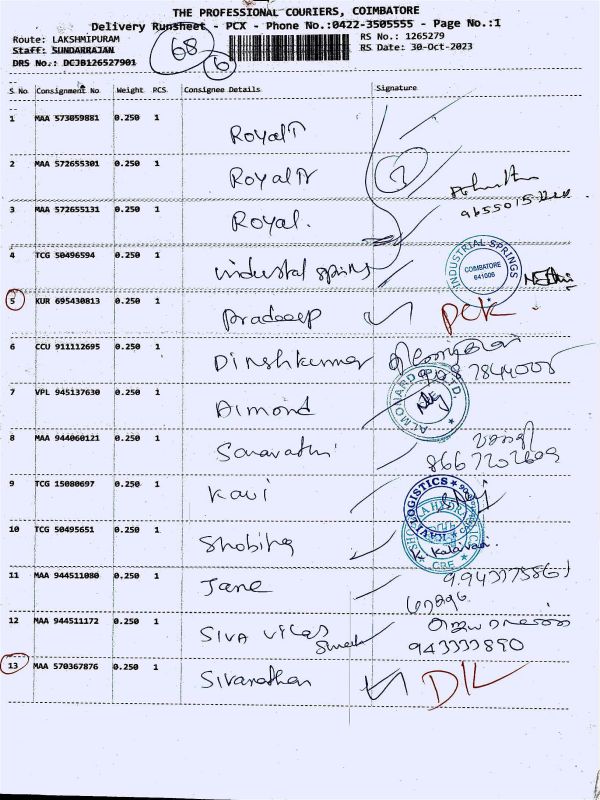 THE PROFESSIONAL COURIERS, COIMBATORE
Delivery Runsheet - PCX - Phone No.:0422-3505555 - Page No.:1
Route: LAKSHMIPURAM
RS No.: 1265279
Staff: SUNDARRAJAN
RS Date: 30-Oct-2023
DRS No.: DCJB126527901
68
6
S.No Consignment No Weight PCS Consignee Details Signature
1 MAA 573059881 0.250 1 Royal
2 MAA 572655301 0.250 1 Royal
3 MAA 572655131 0.250 1 Royal.
4 TCG 50496594 0.250 1 industal springs
INDUSTRIAL SPRINGS
COIMBATORE
641006
5 KUR 695430813 0.250 1 pradeeep
6 CCU 911112695 0.250 1 Dinshkumar
7 VPL 945137630 0.250 1 Almond
8 MAA 944060121 0.250 1
8667202609
9 TCG 15080697 0.250 1 Kavi
KAVI LOGISTICS
10 TCG 50495651 0.250 1 Shobika
Kalaivani
CRE
11 MAA 944511080 0.250 1 Jane
12 MAA 944511172 0.250 1 SIVA Vilas
13 MAA 570367876 0.250 1
DIL